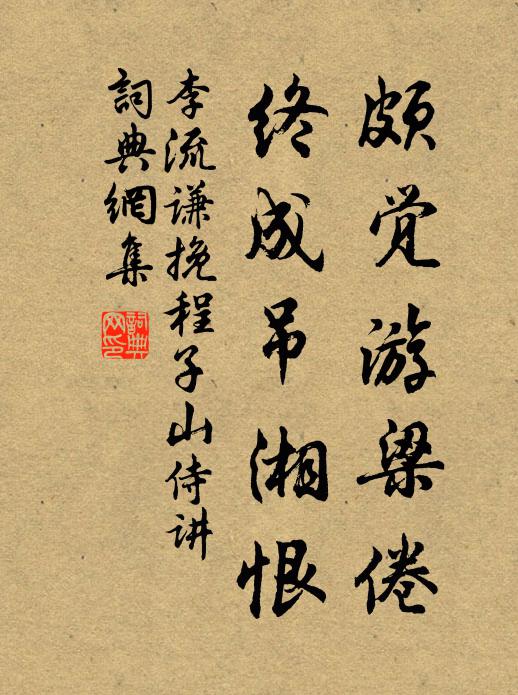 颇觉游梁倦
终成吊湘恨
李流谦挽程子山侍讲
詞典網集
詞典网印